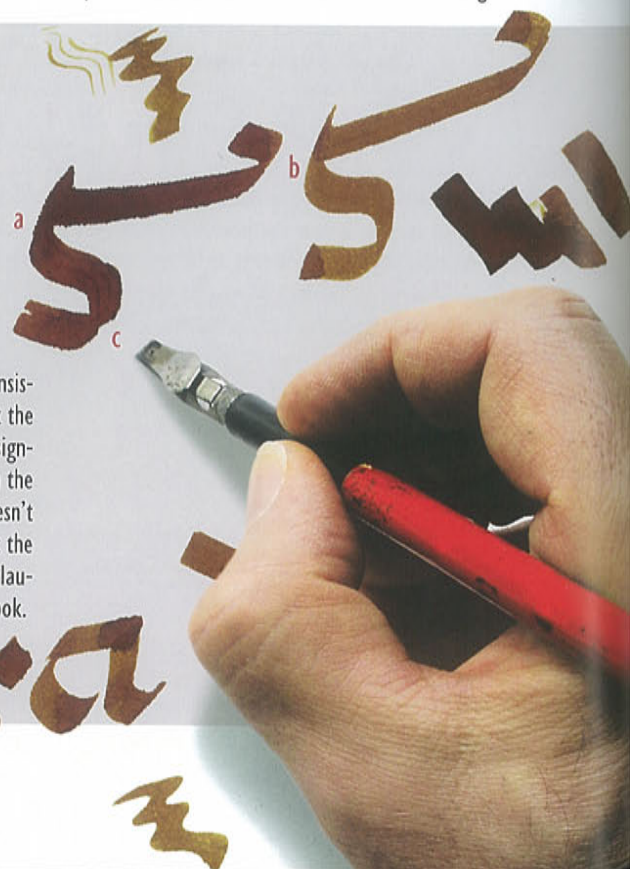 b
s
a
s
c
nsis-
the
sign-
the
esn't
the
lau-
ook.
a